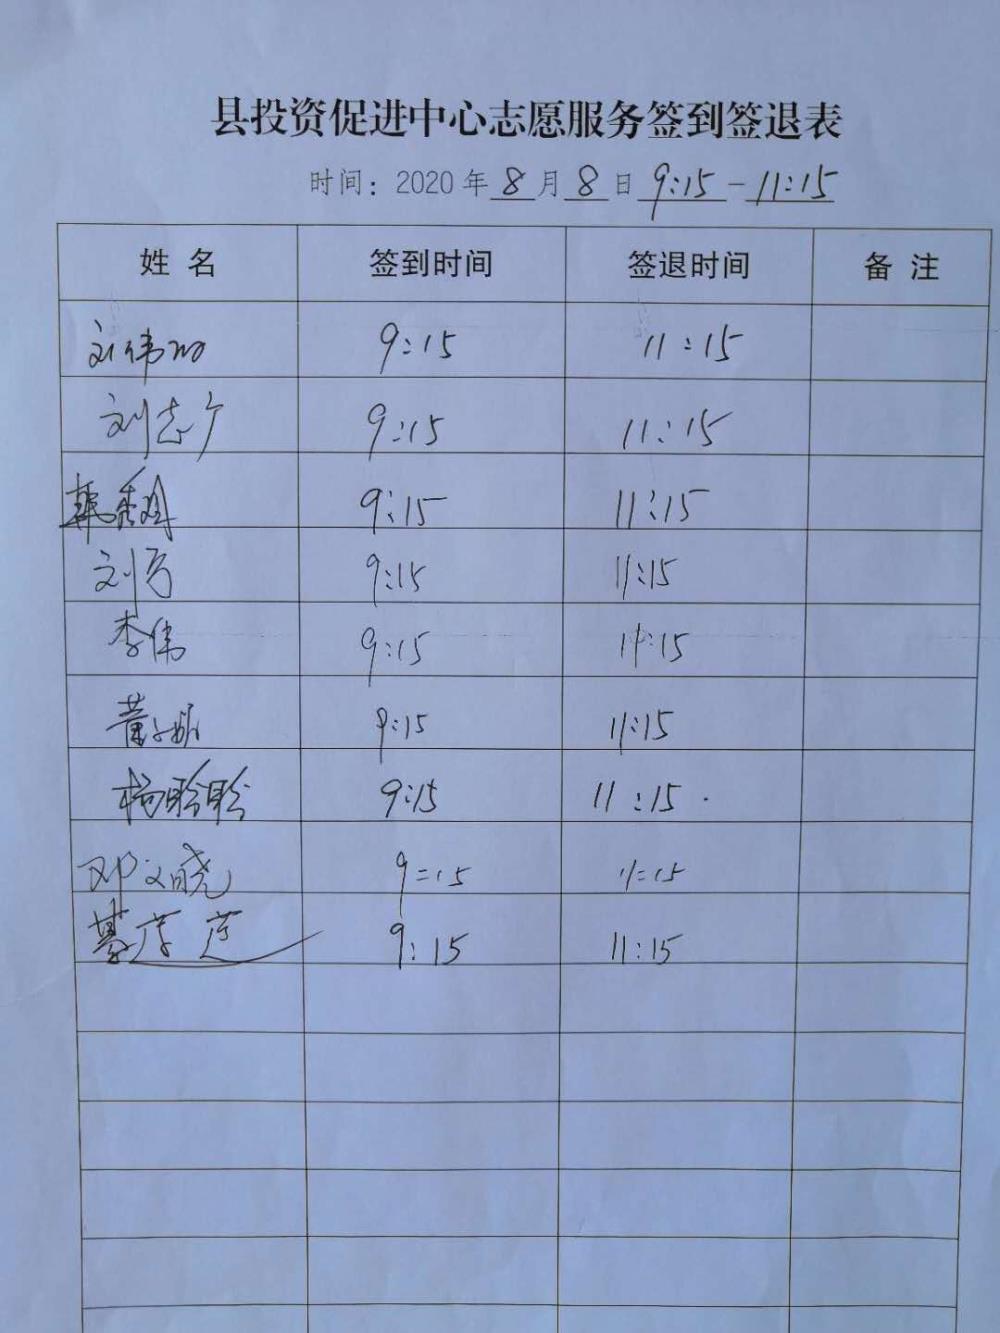 县投资促进中心志愿服务签到签退表
时间：2020年8月8日 9:15-11:15
姓 名 签到时间 签退时间 备 注
刘伟 9:15 11:15
刘志广 9:15 11:15
韩秀 9:15 11:15
刘 9:15 11:15
李伟 9:15 11:15
董 9:15 11:15
杨聆聆 9:15 11:15
邓文晓 9:15 11:15
9:15 11:15